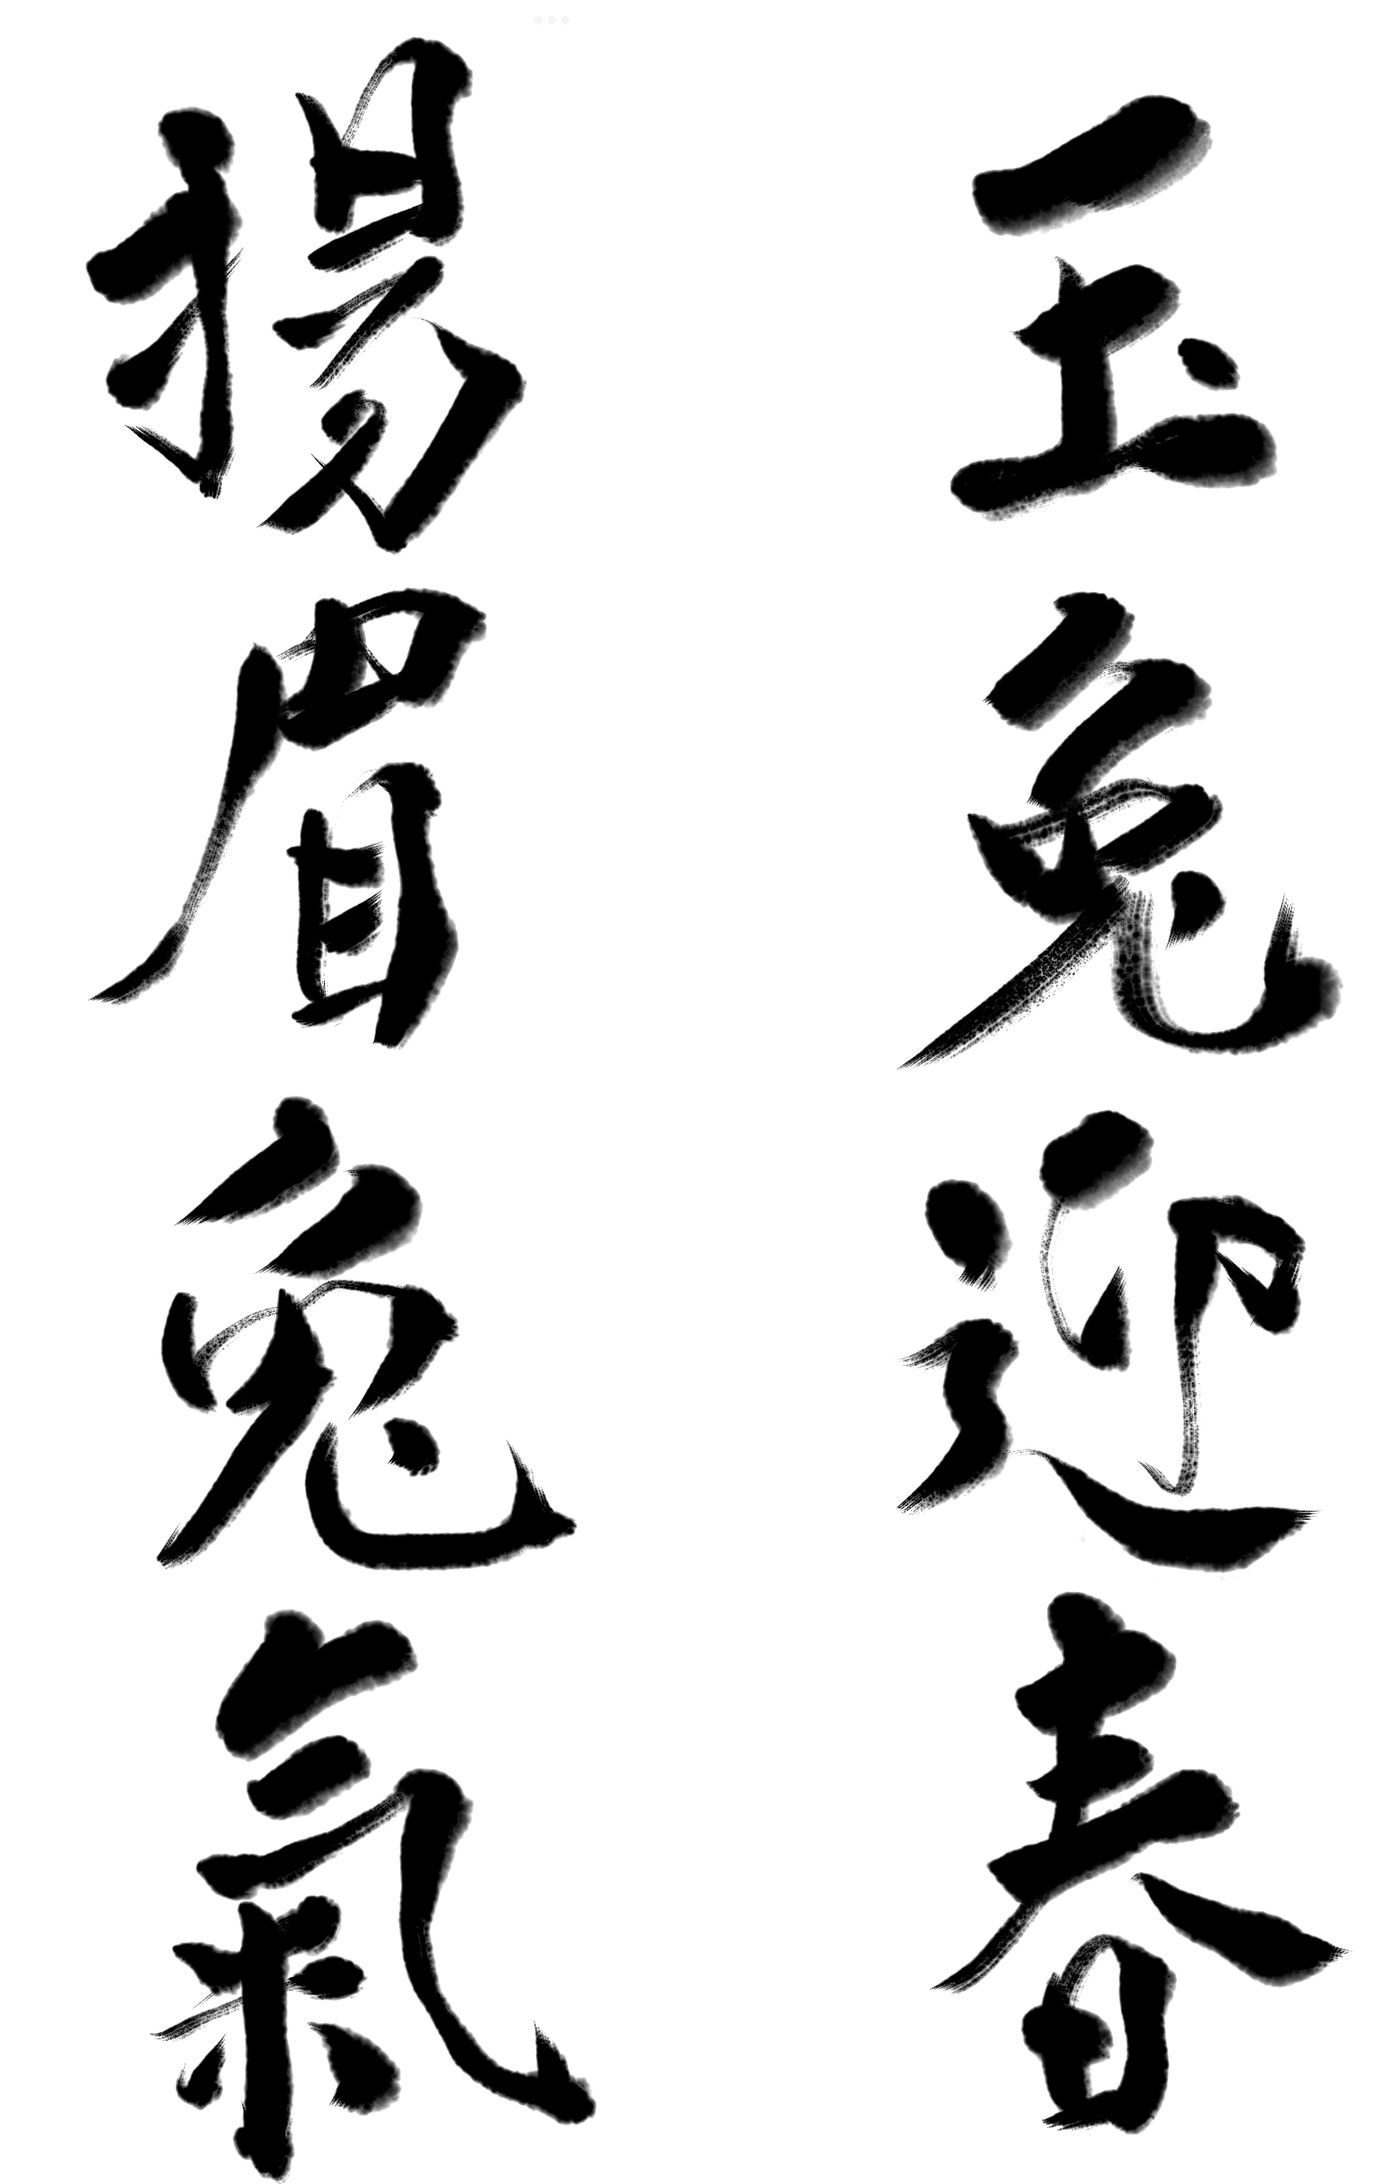 玉兔迎春
揚眉兔氣